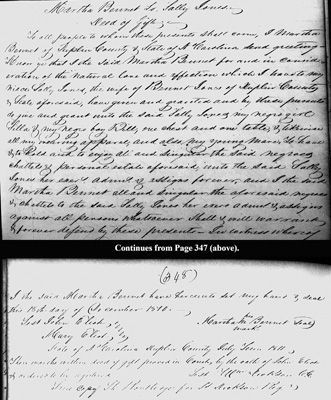 Martha Bennet To Sally Jones
Deed of Gift
To all people to whom these presents shall come, I Martha
Bennet of Duplin County & State of N Carolina send greeting
Know ye that I the Said Martha Bennet for and in consid-
eration of the Natural love and affection which I have to my
niece Sally Jones, the wife of Bennet Jones of Duplin County
& State aforesaid, have given and granted and by these presents
do give and grant unto the Said Sally Jones my negro girl
& my negro boy Bill, one chest and one table, & likewise
all my wearing apparel, and also my young Mare. To have
& to Hold and to enjoy all and Singular the Said negroes
chattels & personal estate aforesaid unto the Said Sally
Jones her exrs admrs & assigns forever. And I the said
Martha Bennet all and Singular the aforesaid negroes
& chattels to the said Sally Jones her exrs admrs & assigns
against all persons whatsoever Shall & will warrant
& forever defend by these presents. In witness whereof
Continues from Page 347 (above).
(348)
I the said Martha Bennet have hereunto set my hand & seal
this 18th day of December 1810.
Test John Elliot Martha her Bennet Seal
Mary Elliot mark
State of N Carolina Duplin County July Term 1811.
Then was the within deed of gift proved in County by the oath of John Elliot
& ordered to be registered Test Wm Dickson CC
True Copy